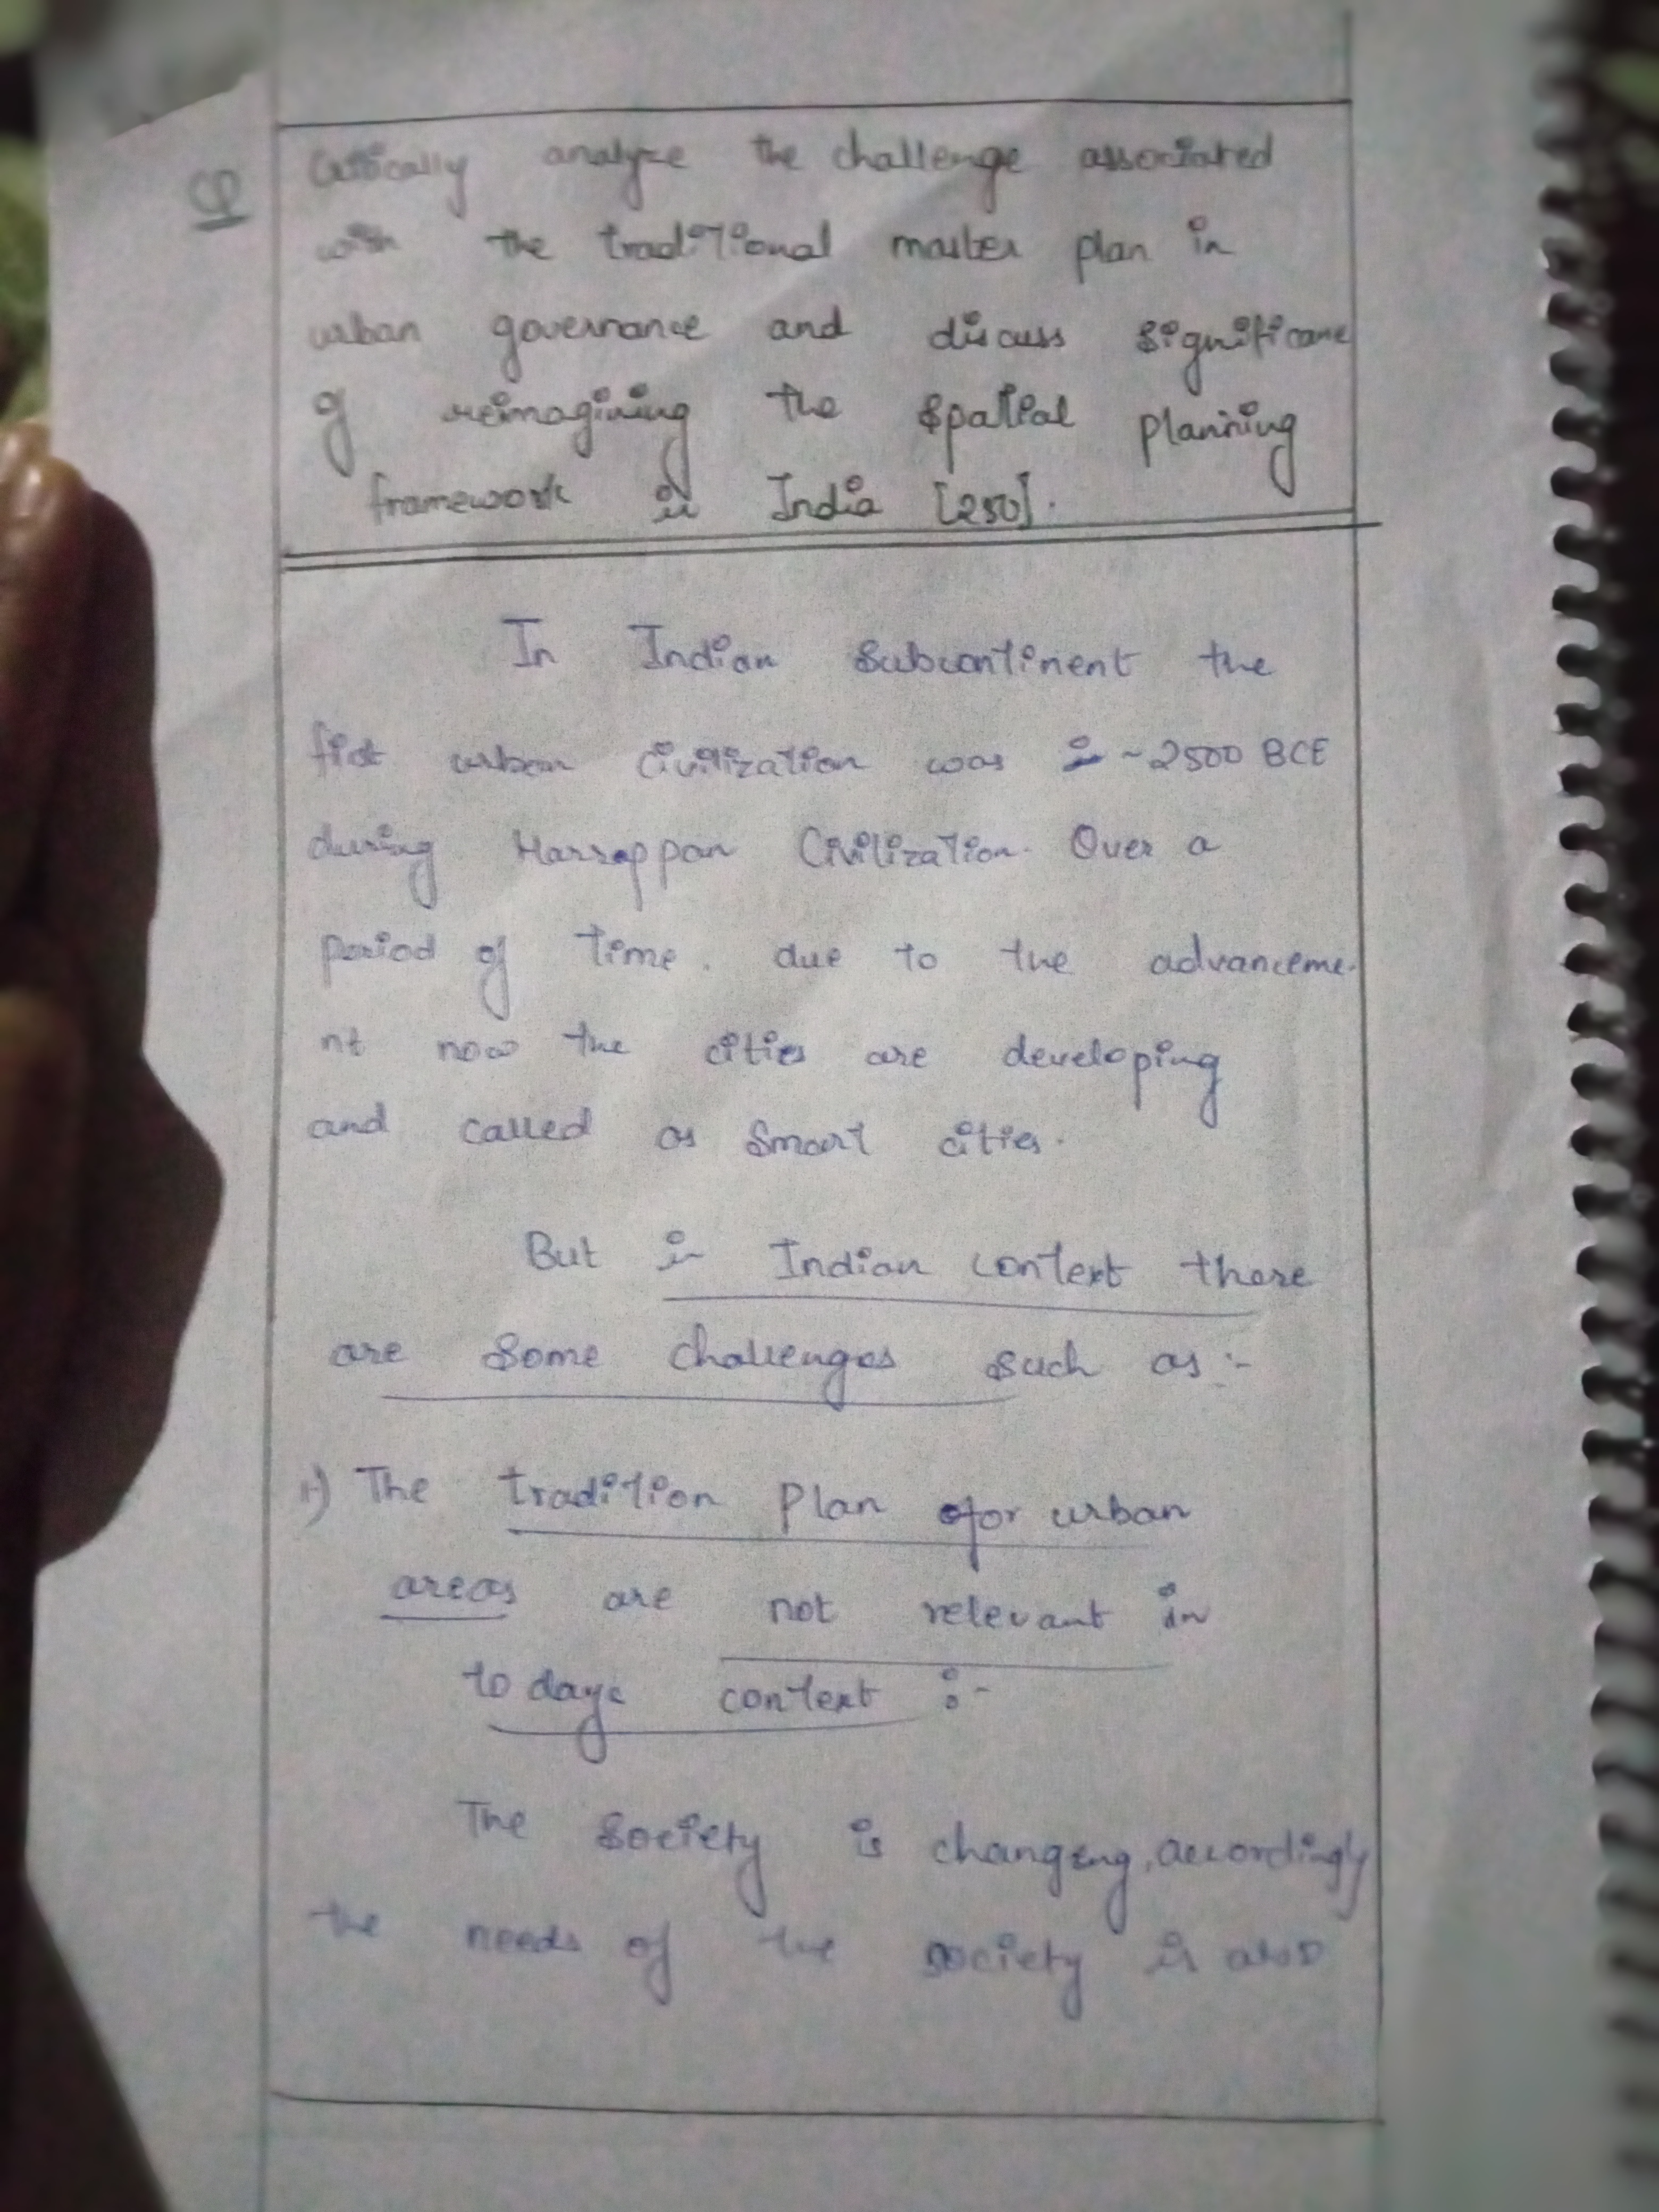 Q Critically analyze the challenge associated
with the traditional master plan in
urban governance and discuss significane
of reimagining the spatial planning
framework in India [250].
In Indian Subcontinent the
first urban civilization was in ~2500 BCE
during Harrappan Civilization. Over a
period of time. due to the advanceme-
nt now the cities are developing
and called as Smart cities.
But in Indian context there
are some challenges such as :-
1) The tradition plan for urban
areas are not relevant in
todays context :-
The Society is changing, accordingly
the needs of the society is also